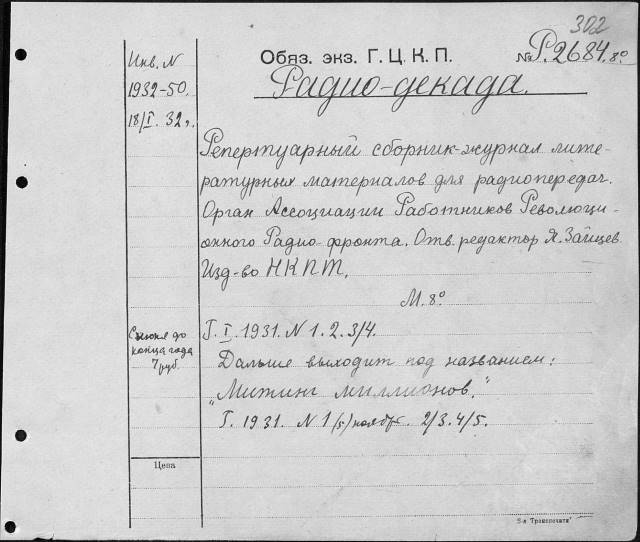 302
Обяз. экз. Г. Ц. К. П.
№ Р.2684.8º
Инв. N
1932-50.
18/I. 32 г.
Радио-декада.
Репертуарный сборник-журнал лите-
ратурных материалов для радиопередач.
Орган Ассоциации Работников Революци-
онного Радио-фронта. Отв. редактор Я. Зайцев.
Изд-во НКПТ.
М. 8º
С июля до
конца года
7 руб.
Г. I. 1931. N 1. 2. 3/4.
Дальше выходит под названием:
„Митинг миллионов."
Г. 1931. N 1/5/ноябр. 2/3. 4/5.
Цена
5-я Транспечати"